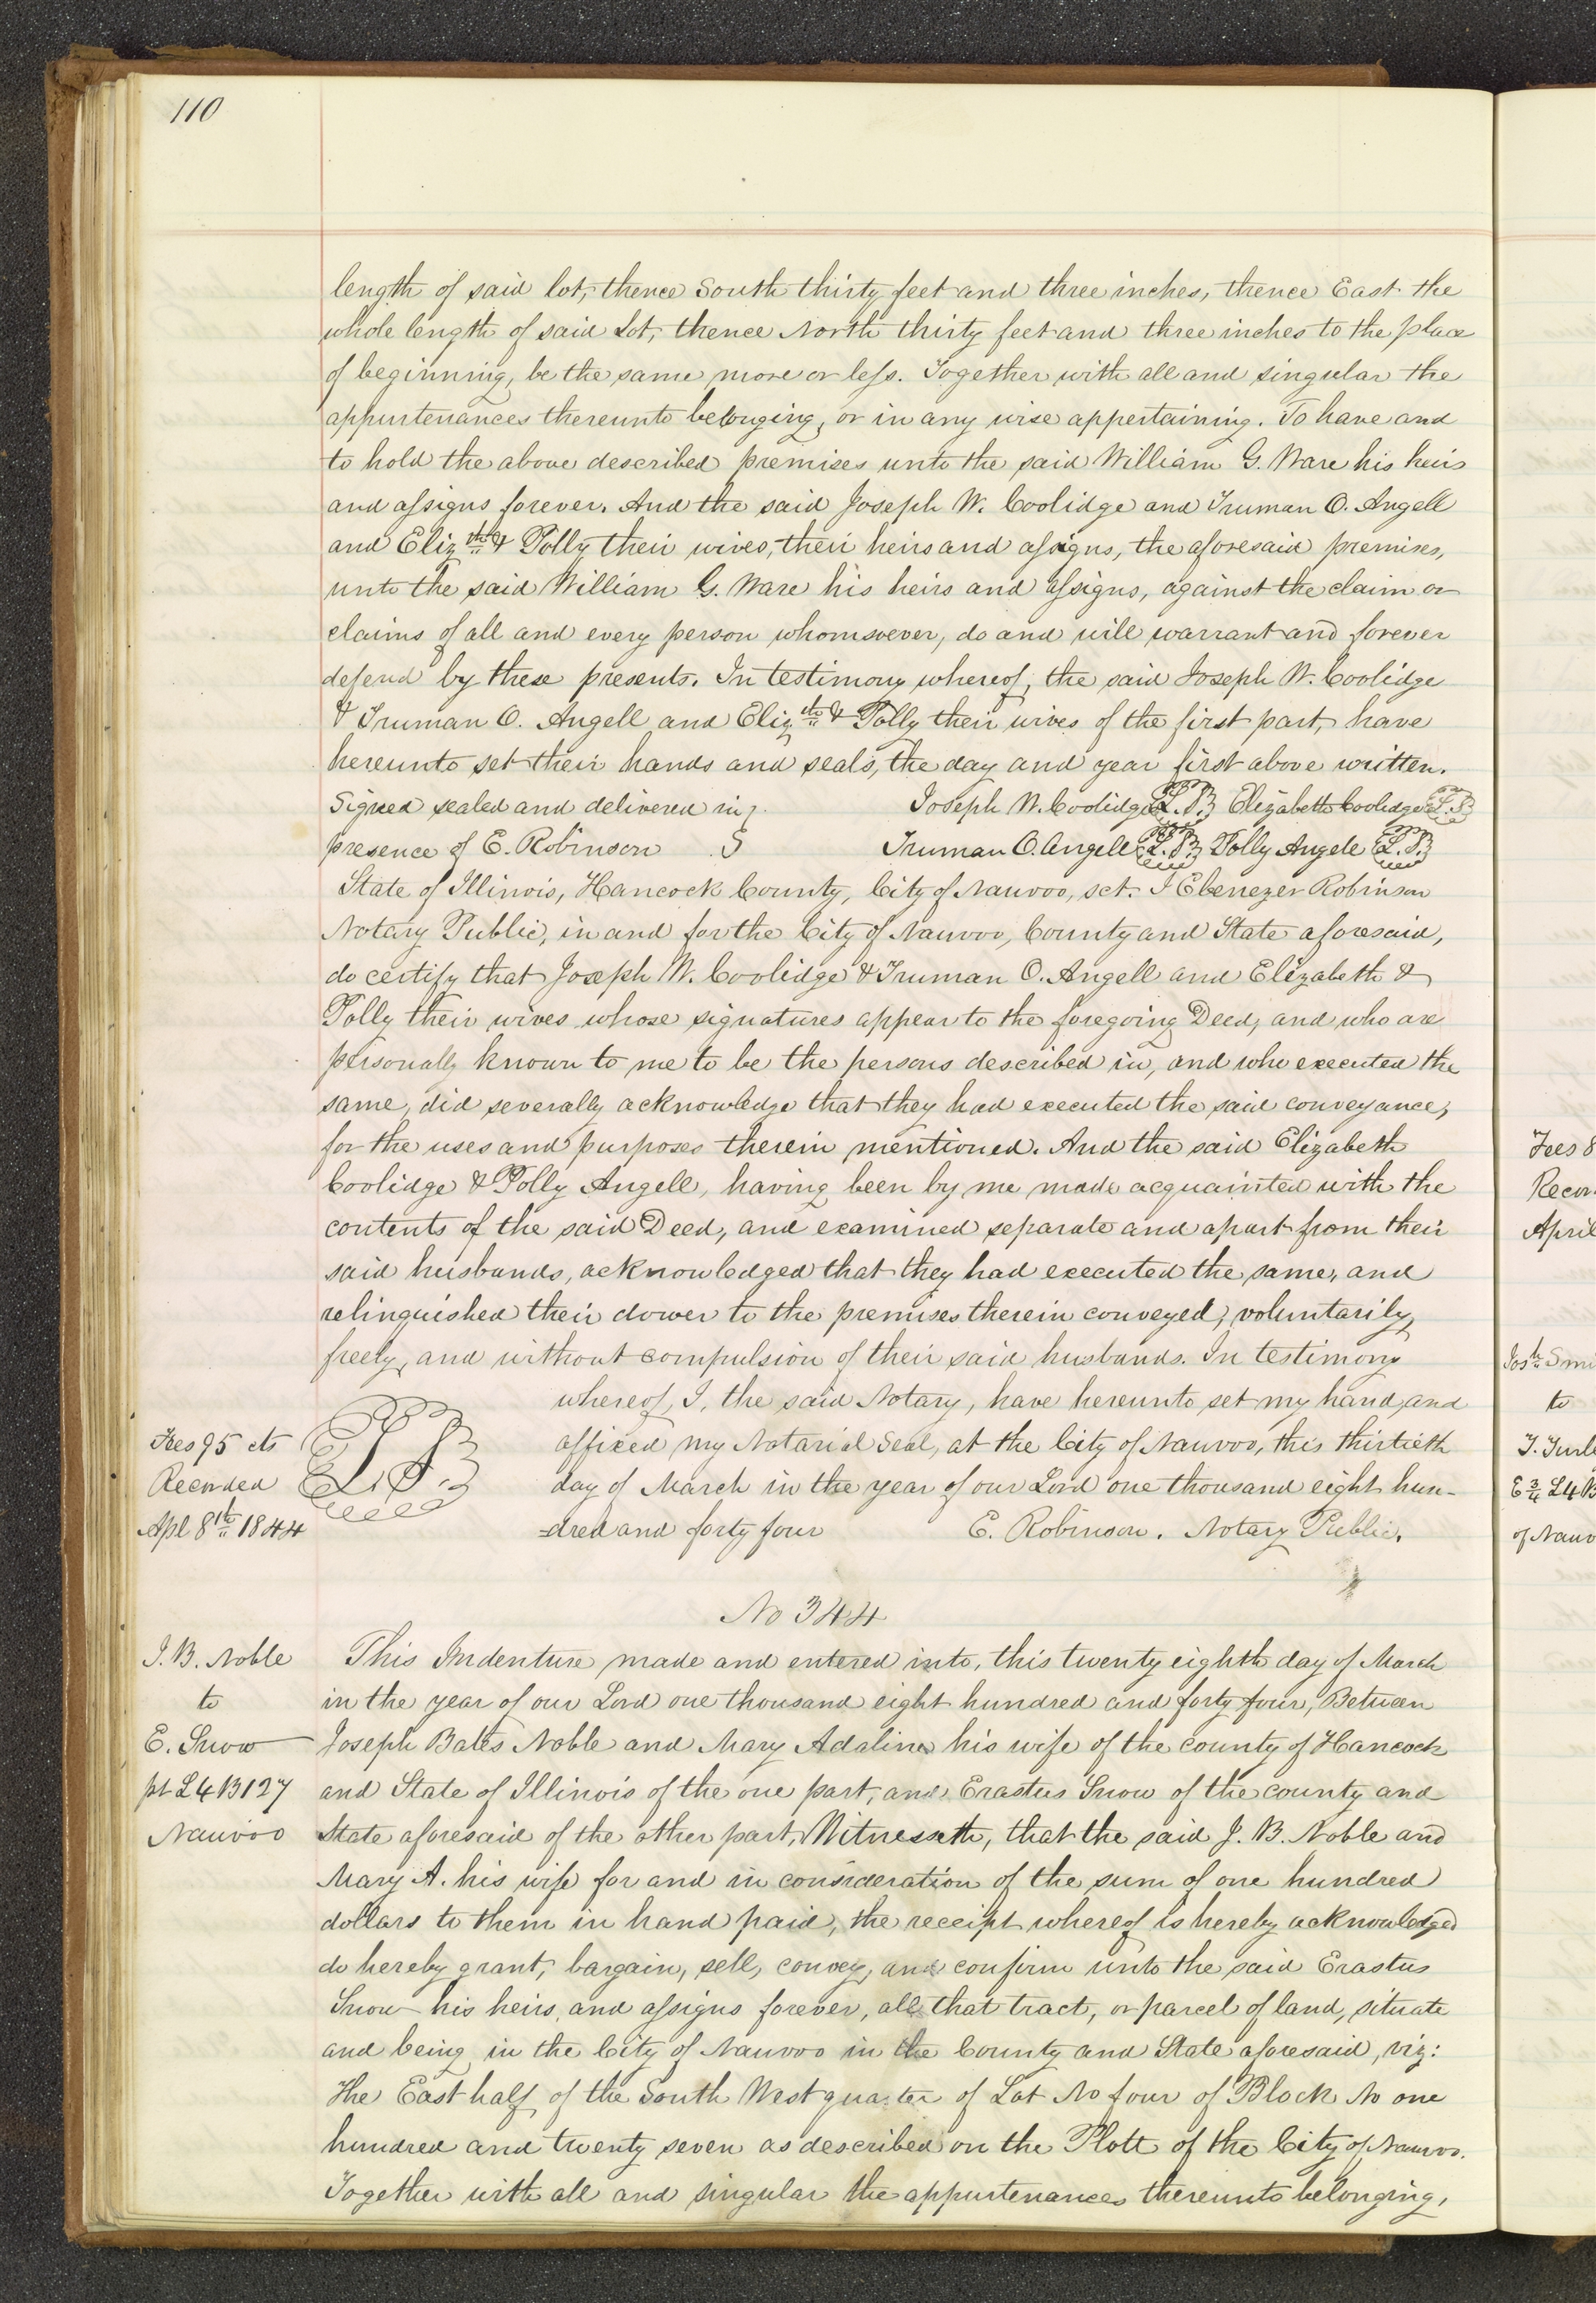 110
length of said lot, thence South thirty feet and three inches, thence East the
whole length of said Lot, thence North thirty feet and three inches to the place
of beginning, be the same more or less. Together with all and singular the
appurtenances thereunto belonging, or in any wise appertaining. To have and
to hold the above described premises unto the said William G. Ware his heirs
and assigns forever. And the said Joseph W. Coolidge and Truman O. Angell
and Elizth & Polly their wives, their heirs and assigns, the aforesaid premises,
unto the said William G. Ware his heirs and assigns, against the claim or
claims of all and every person whomsoever, do and will warrant and forever
defend by these presents. In testimony whereof, the said Joseph W. Coolidge
& Truman O. Angell and Elizth & Polly their wives of the first part, have
hereunto set their hands and seals, the day and year first above written.
Signed sealed and delivered in Joseph W. Coolidge L.S. Elizabeth Coolidge L.S.
presence of E. Robinson Truman O. Angell L.S. Polly Angele L.S.
State of Illinois, Hancock County, City of Nauvoo, sct. I Ebenezer Robinson
Notary Public, in and for the City of Nauvoo, County and State aforesaid,
do certify that Joseph W. Coolidge & Truman O. Angell and Elizabeth &
Polly their wives whose signatures appear to the foregoing Deed, and who are
personally known to me to be the persons described in, and who executed the
same, did severally acknowledge that they had executed the said conveyance,
for the uses and purposes therein mentioned. And the said Elizabeth
Coolidge & Polly Angell, having been by me made acquainted with the
contents of the said Deed, and examined separate and apart from their
said husbands, acknowledged that they had executed the same, and
relinquished their dower to the premises therein conveyed, voluntarily,
freely, and without compulsion of their said husbands. In testimony
whereof, I, the said Notary, have hereunto set my hand, and
Fees 95 cts L.S. affixed my Notarial Seal, at the City of Nauvoo, this thirtieth
Recorded day of March in the year of our Lord one thousand eight hun-
Apl 8th 1844 -dred and forty four E. Robinson. Notary Public.
No 344
J. B. Noble This Indenture made and entered into, this twenty eighth day of March
to in the year of our Lord one thousand eight hundred and forty four, Between
E. Snow Joseph Bates Noble and Mary Adaline his wife of the county of Hancock
pt L4 B127 and State of Illinois of the one part, and Erastus Snow of the county and
Nauvoo State aforesaid of the other part, Witnesseth, that the said J. B. Noble and
Mary A. his wife for and in consideration of the sum of one hundred
dollars to them in hand paid, the receipt whereof is hereby acknowledged
do hereby grant, bargain, sell, convey, and confirm unto the said Erastus
Snow his heirs, and assigns forever, all that tract, or parcel of land, situate
and being in the City of Nauvoo in the County and State aforesaid, viz:
The East half of the South West quarter of Lot No four of Block No one
hundred and twenty seven as described on the Plott of the City of Nauvoo.
Together with all and singular the appurtenances thereunto belonging,
Fees 8
Recor
April
Josh Smi
to
E 3/4 L4 B
of Nauv